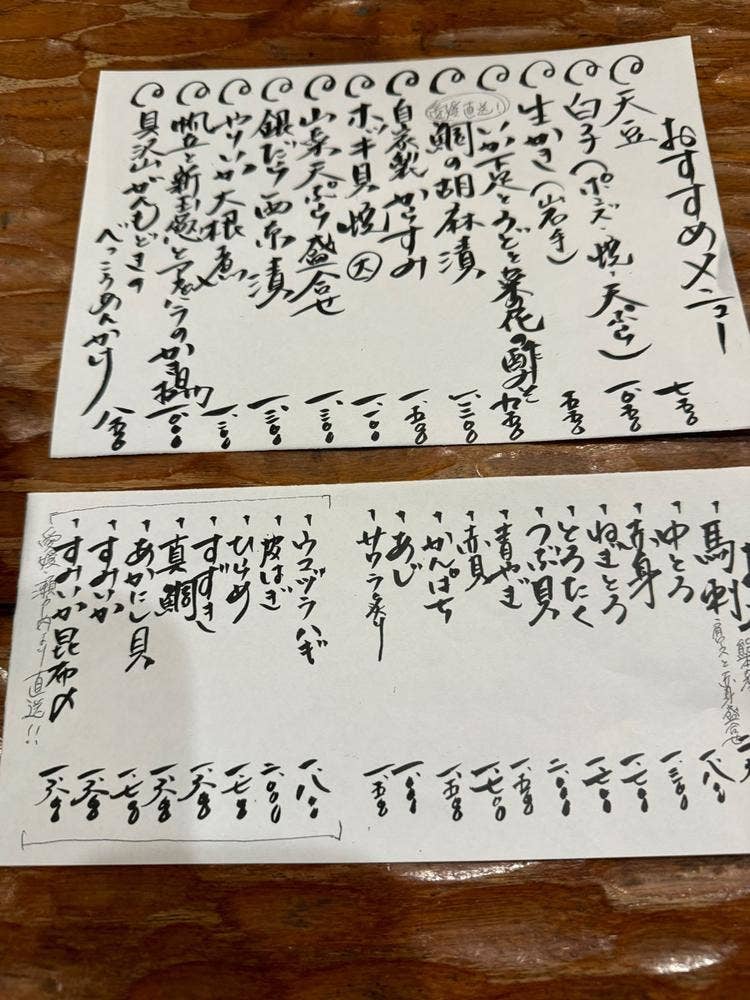 おすすめメニュー
天豆 七五〇
白子(ポンズ・焼・天ぷら) 一、〇五〇
生かき(岩手) 五五〇
いか下足とうどと菜の花の酢みそ 九五〇
愛媛直送!
鯛の胡麻漬 一、三〇〇
自家製からすみ 一、五〇〇
ホッキ貝焼 大 一、一〇〇
山菜天ぷら盛合せ 一、三〇〇
銀だら西京漬 一、三〇〇
やりいか大根煮 一、一〇〇
帆立と新玉葱と のかき揚 一、一〇〇
貝沢山がんもどきの
べっこうあんかけ 八五〇
馬刺
肩ロスと赤身盛合せ
一、八〇〇
中とろ 一、三〇〇
赤身 一、七〇〇
ねぎとろ 一、七〇〇
とろたく 二、〇〇〇
つぶ貝 一、五〇〇
青やぎ 一、七〇〇
赤貝
かんぱち 一、五〇〇
あじ 一、〇〇〇
サワラ炙り 一、五〇〇
ウマヅラハギ 一、八〇〇
皮はぎ 二、〇〇〇
ひらめ 一、七〇〇
すずき 一、六〇〇
真鯛 一、六〇〇
あかにし貝 一、七〇〇
すみいか 一、六〇〇
すみいか昆布〆 一、六〇〇
愛媛・瀬戸内より直送!!